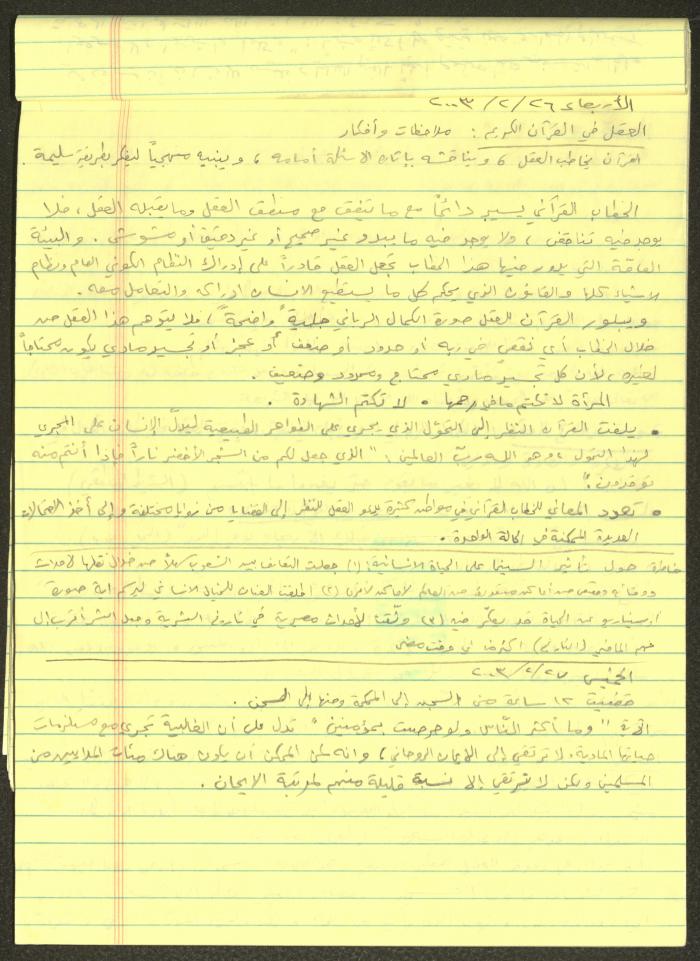 الأربعاء ٢٦/ ٢/ ٢٠٠٣
العقل في القرآن الكريم : ملاحظات وأفكار
القرآن يخاطب العقل ، ويناقشه بإثارة الاسئلة أمامه ، ويبنيه منهجياً ليفكر بطريقة سليمة .
الخطاب القرآني يسير دائماً مع ما يتفق مع منطق العقل وما يقبله العقل ، فلا
يوجد فيه تناقض ، ولا يوجد فيه ما يبدو غير صحيح أو غير دقيق أو مشوش . والبيئة
العامة التي يدور فيها هذا الخطاب تجعل العقل قادراً على إدراك النظام الكوني العام ونظام
الاشياء كلها والقانون الذي يحكم كل ما يستطيع الانسان ادراكه والتعامل معه .
ويبلور القرآن للعقل صورة الكمال الرباني جلية واضحة ، فلا يتوهم هذا العقل من
خلال الخطاب أي نقص في ربه أو حدود أو ضعف أو عجز أو تجسيد مادي يكون محتاجاً
لغيره ، لأن كل تجسيد مادي محتاج ومحدود وضعيف .
المرأة لا تكتم ما في رحمها • لا تكتم الشهادة .
• يلفت القرآن النظر إلى التحول الذي يجري على الظواهر الطبيعية ليدلّ الإنسان على المجري
لهذا التحول ، وهو الله ربّ العالمين : " الذي جعل لكم من الشجر الأخضر ناراً فإذا أنتم منه
توقدون . "
• تعدد المعاني للخطاب القرآني في مواطن كثيرة يدعو العقل للنظر إلى القضايا من زوايا مختلفة وإلى أخذ الاحتمالات
العديدة الممكنة في الحالة الواحدة .
خاطرة حول تأثير السينما على الحياة الانسانية : (١) جعلت التعارف بين الشعوب سهلاً من خلال نقلها لأحداث
ووقائع وقصص من أماكن متفرقة من العالم لأماكن أخرى (٢) أطلقت العنان للخيال الانساني ليرسم أية صورة
أو سيناريو عن الحياة قد يفكر فيه (٣) وثّقت لأحداث مصيرية في تاريخ البشرية وجعل البشر أقرب إلى
فهم الماضي (التاريخ) اكثر من أي وقت مضى
الخميس ٢٧/ ٢/ ٢٠٠٣
قضيت ١٢ ساعة من السجن إلى المحكمة ومنها إلى السجن .
الآية " وما أكثر النّاس ولو حرصت بمؤمنين " تدل على أن الغالبية تجري مع مستلزمات
حياتها المادية ، لا ترتقي إلى الإيمان الروحاني ، وانه لمن الممكن أن يكون هناك مئات الملايين من
المسلمين ولكن لا ترتقي إلا نسبة قليلة منهم لمرتبة الايمان .